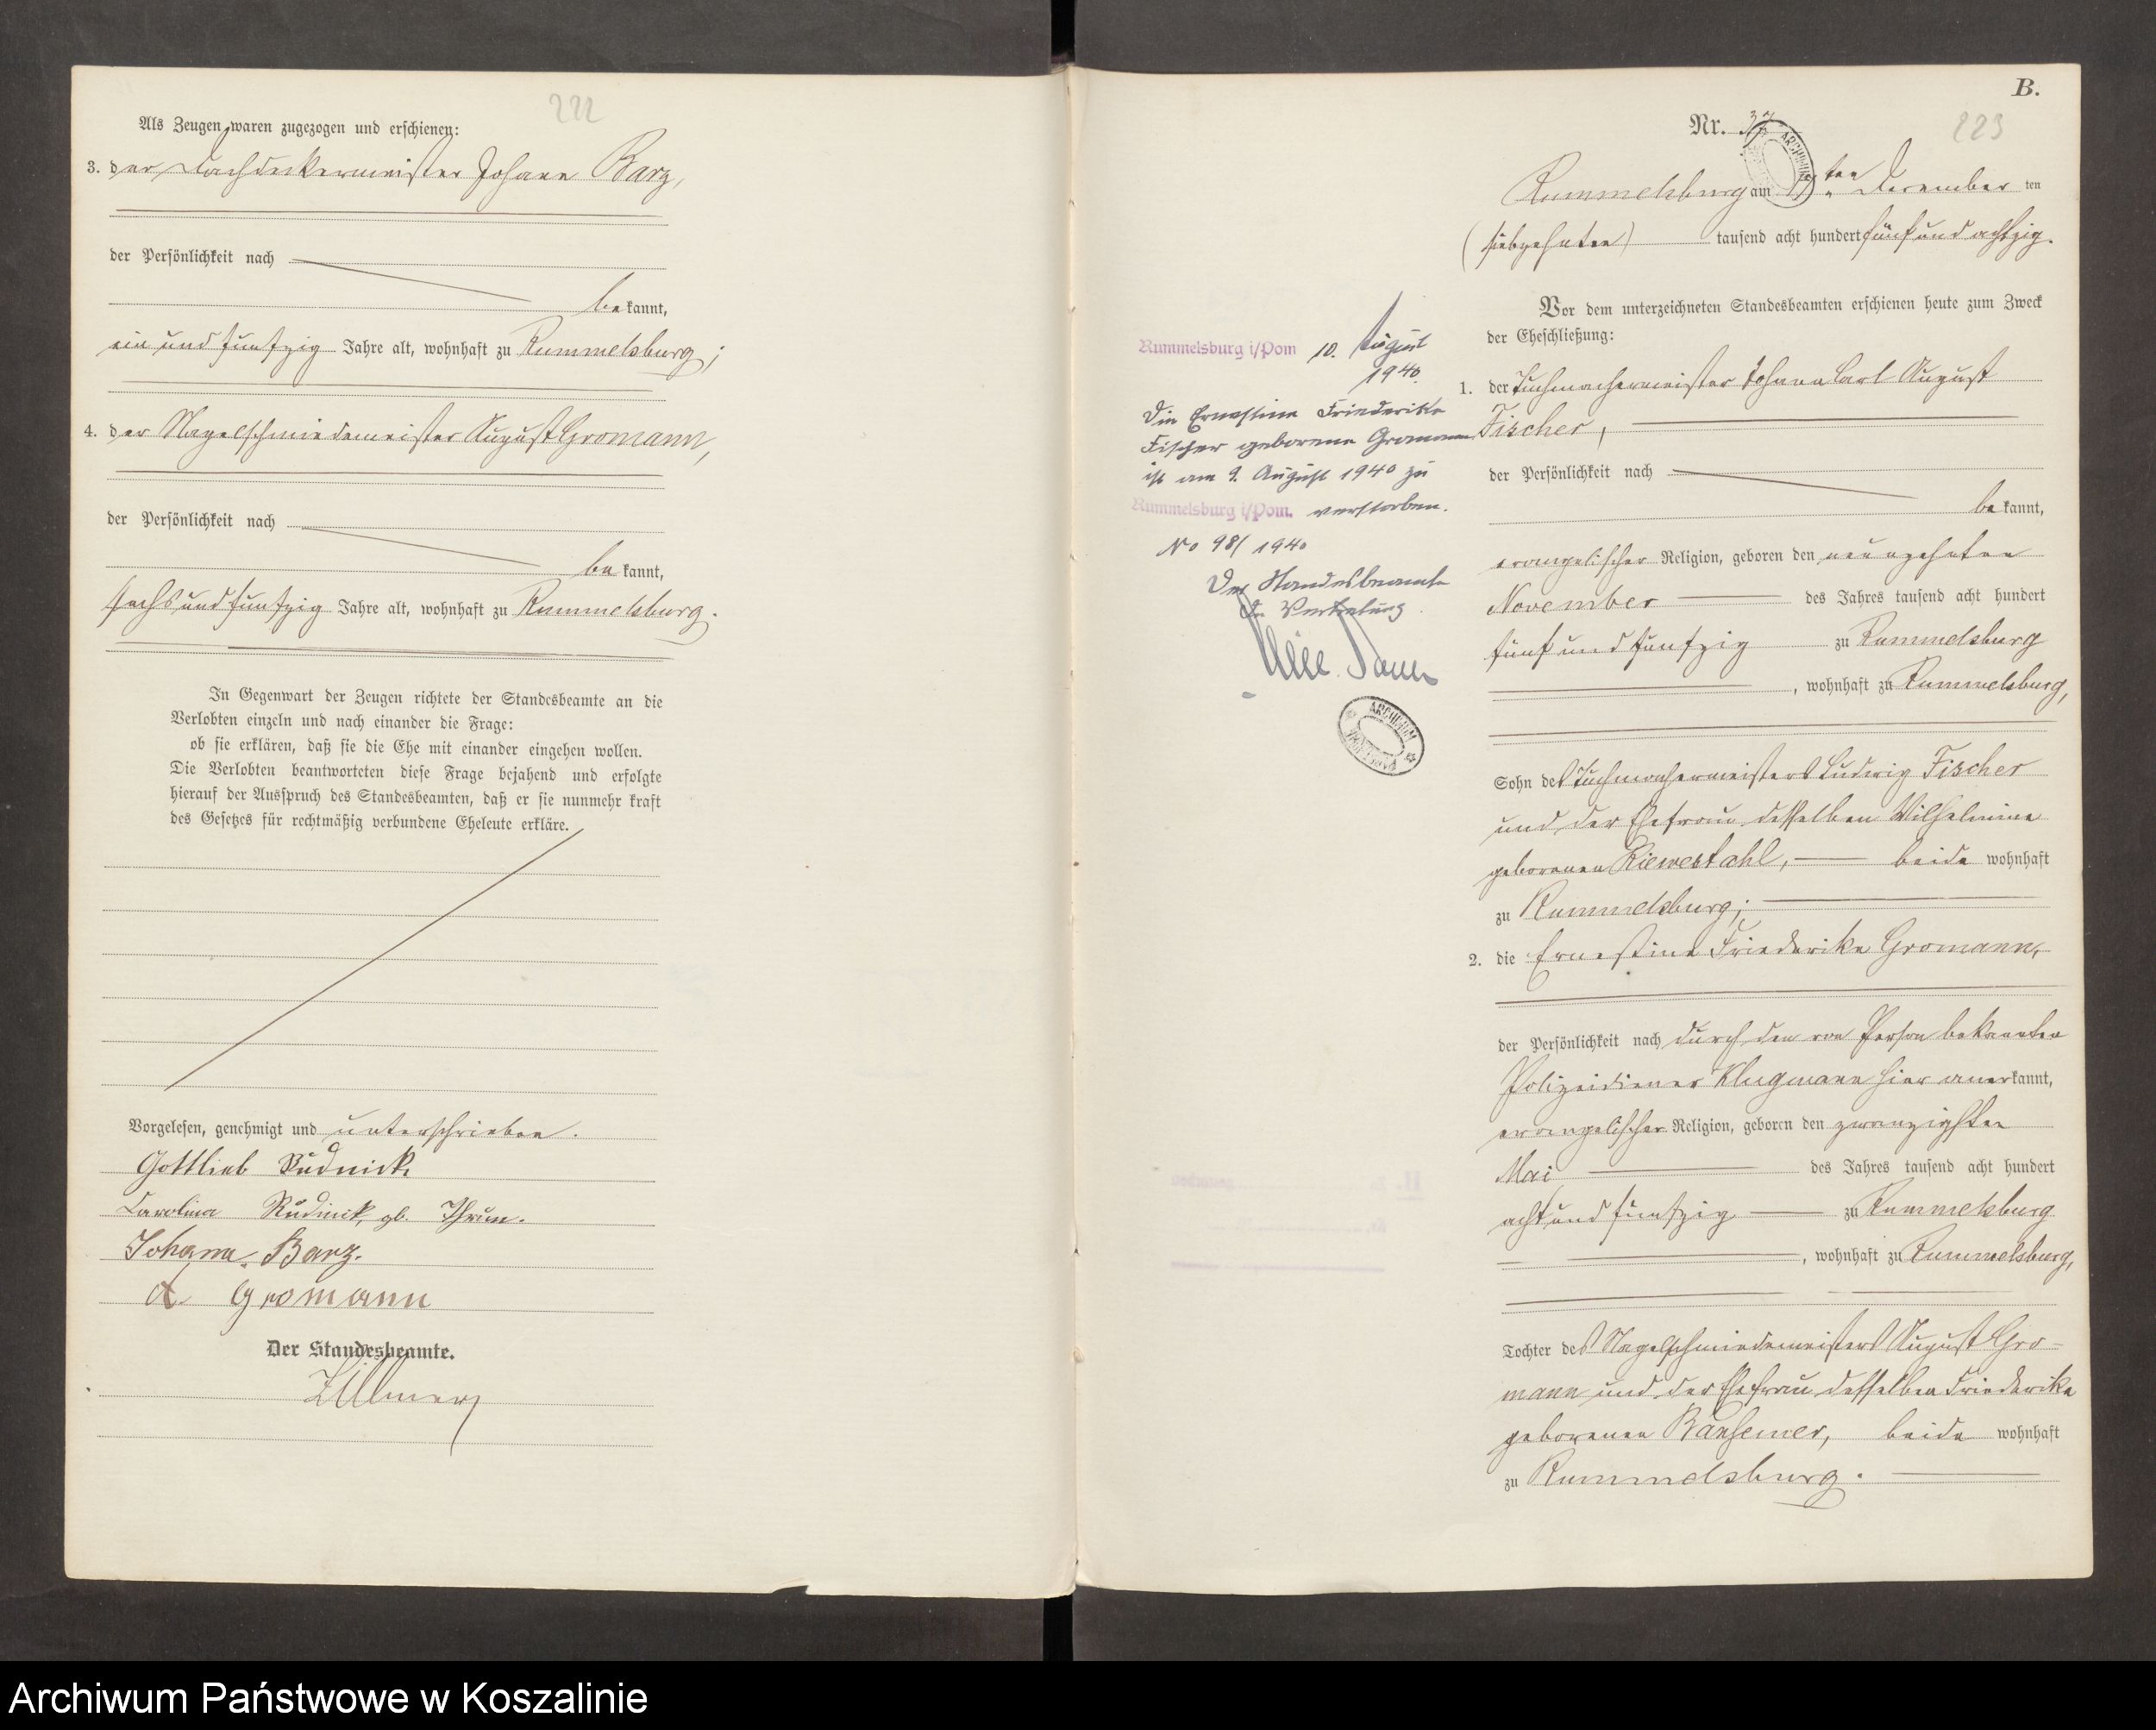 222
Als Zeugen waren zugezogen und erschienen:
3. der Dachdeckermeister Johann Barz,
der Persönlichkeit nach
bekannt,
ein und funfzig Jahre alt, wohnhaft zu Rummelsburg;
4. der Nagelschmiedemeister August Gromann,
der Persönlichkeit nach
bekannt,
sechs und funfzig Jahre alt, wohnhaft zu Rummelsburg.
In Gegenwart der Zeugen richtete der Standesbeamte an die
Verlobten einzeln und nach einander die Frage:
ob sie erklären, daß sie die Ehe mit einander eingehen wollen.
Die Verlobten beantworteten diese Frage bejahend und erfolgte
hierauf der Ausspruch des Standesbeamten, daß er sie nunmehr kraft
des Gesetzes für rechtmäßig verbundene Eheleute erkläre.
Vorgelesen, genehmigt und unterschrieben.
Gottlieb Rudnick
Carolina Rudnick, gb. Thrun.
Johann Barz.
A Gromann
Der Standesbeamte.
Zillmer
B.
Nr. 37
223
Rummelsburg am 17ten December ten
(siebzehnten) tausend acht hundert fünf und achtzig.
Vor dem unterzeichneten Standesbeamten erschienen heute zum Zweck
der Eheschließung:
1. der Tuchmachermeister Johann Carl August
Fischer,
der Persönlichkeit nach
bekannt,
evangelischer Religion, geboren den neunzehnten
November des Jahres tausend acht hundert
fünf und funfzig zu Rummelsburg
, wohnhaft zu Rummelsburg,
Sohn des Tuchmachermeisters Ludwig Fischer
und der Ehefrau desselben Wilhelmine
geborenen Kiewestahl, beide wohnhaft
zu Rummelsburg;
2. die Ernestine Friederike Gromann,
der Persönlichkeit nach durch den von Person bekannten
Polizeidiener Klugmann hier anerkannt,
evangelischer Religion, geboren den zwanzigsten
Mai des Jahres tausend acht hundert
acht und funfzig zu Rummelsburg
, wohnhaft zu Rummelsburg,
Tochter des Nagelschmiedemeisters August Gro-
mann und der Ehefrau desselben Friederike
geborenen Bansemer, beide wohnhaft
zu Rummelsburg.
Rummelsburg i/Pom 10. August
1940.
Die Ernestine Friederike
Fischer geborene Gromann
ist am 9. August 1940 zu
Rummelsburg i/Pom. verstorben.
No 98/1940
Der Standesbeamte
In Vertretung
ARCHIWUM
Archiwum Państwowe w Koszalinie